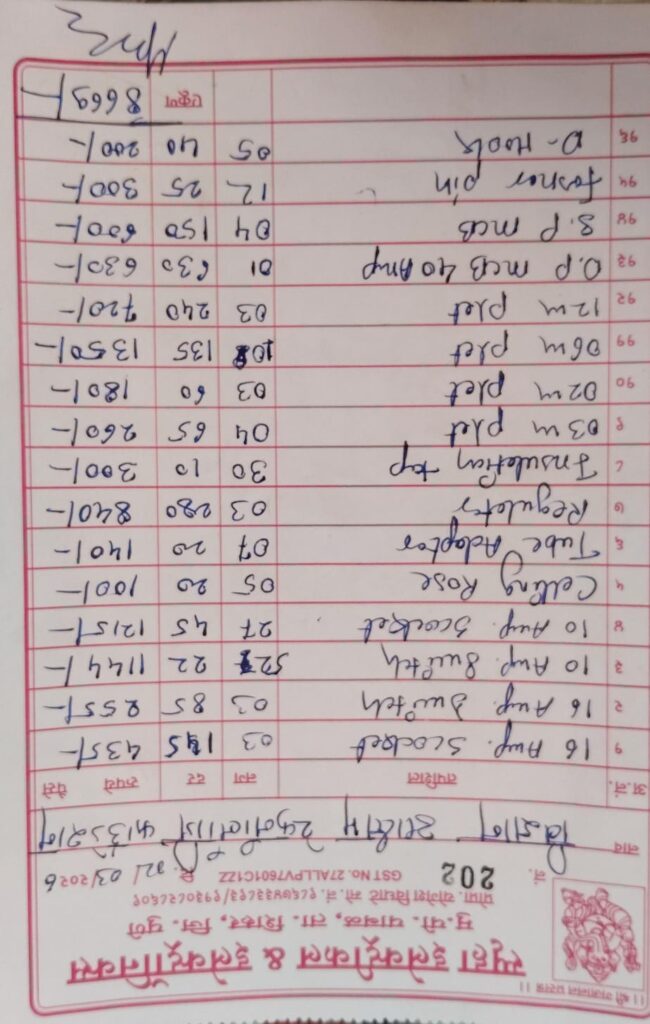 ।। श्री गजानन प्रसन्न ।।
स्नुहा इलेक्ट्रीकल & इलेक्ट्रॉनिक्स
मु.पो. पाबळ, ता. शिरूर, जि. पुणे
नं. 202 GST No. 27ALLPV7601C1ZZ दि. 02/03/2026
नाव विज्ञान आश्रम
अ.नं. तपशिल नग दर रुपये पैसे
१ 16 Amp. Scocket 03 145 435/-
२ 16 Amp. Switch 03 85 255/-
३ 10 Amp. Switch 52 22 1144/-
४ 10 Amp. Scocket 27 45 1215/-
५ Celling Rose 05 20 100/-
६ Tube Adaptor 07 20 140/-
७ Regulator 03 280 840/-
८ Insulation tap 30 10 300/-
९ 03 m plet 04 65 260/-
१० 02 m plet 03 60 180/-
११ 06 m plet 10 135 1350/-
१२ 12 m plet 03 240 720/-
१३ D.P MCB 40 Amp 01 630 630/-
१४ S.P MCB 04 150 600/-
१५ fasnar pin 12 25 300/-
१६ D-Hook 05 40 200/-
एकूण 8669/-